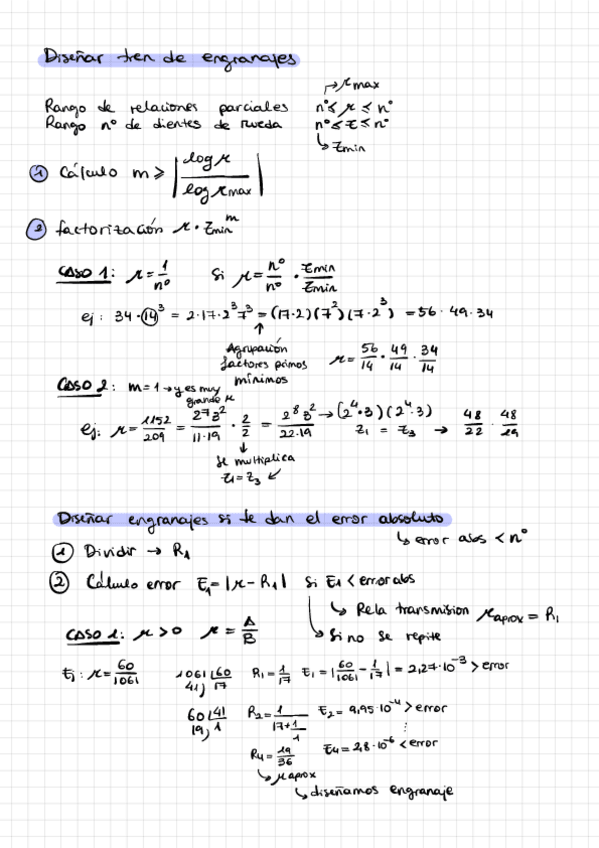 Diseñar tren de engranajes
→ r max
Rango de relaciones parciales nº ≤ r ≤ nº
Rango nº de dientes de rueda nº ≤ z ≤ nº
↳ Zmin
① Cálculo m ≥ | log r / log rmax |
② factorización r · Zmin^m
CASO 1: r = 1/nº Si r = nº/nº · Zmin/Zmin
ej: 34·14³ = 2·17·2³7³ = (17·2)(7²)(7·2³) = 56·49·34
↑
Agrupación factores primos mínimos
r = 56/14 · 49/14 · 34/14
CASO 2: m=1 → r es muy grande
ej: r = 1152/209 = 2⁷3²/11·19 · 2/2 = 2⁸3²/22·19 → (2⁴·3)(2⁴·3)
z₁ = z₃ → 48/22 · 48/19
↓
se multiplica
z₁=z₃ ↙
Diseñar engranajes si te dan el error absoluto
↳ error abs < nº
① Dividir → R₁
② Cálculo error E₁ = |r − R₁| Si E₁ < error abs
↳ Rela transmision raprox = R₁
↳ Si no se repite
CASO 1: r > 0 r = A/B
Ej: r = 60/1061 1061 |60 41, 17 R₁ = 1/17 E₁ = |60/1061 − 1/17| = 2,27·10⁻³ > error
60 |41 19, 1 R₂ = 1/(17+1/1) E₂ = 9,95·10⁻⁴ > error
⋮
R₄ = 19/36 E₄ = 2,8·10⁻⁶ < error
↳ r aprox
↳ diseñamos engranaje